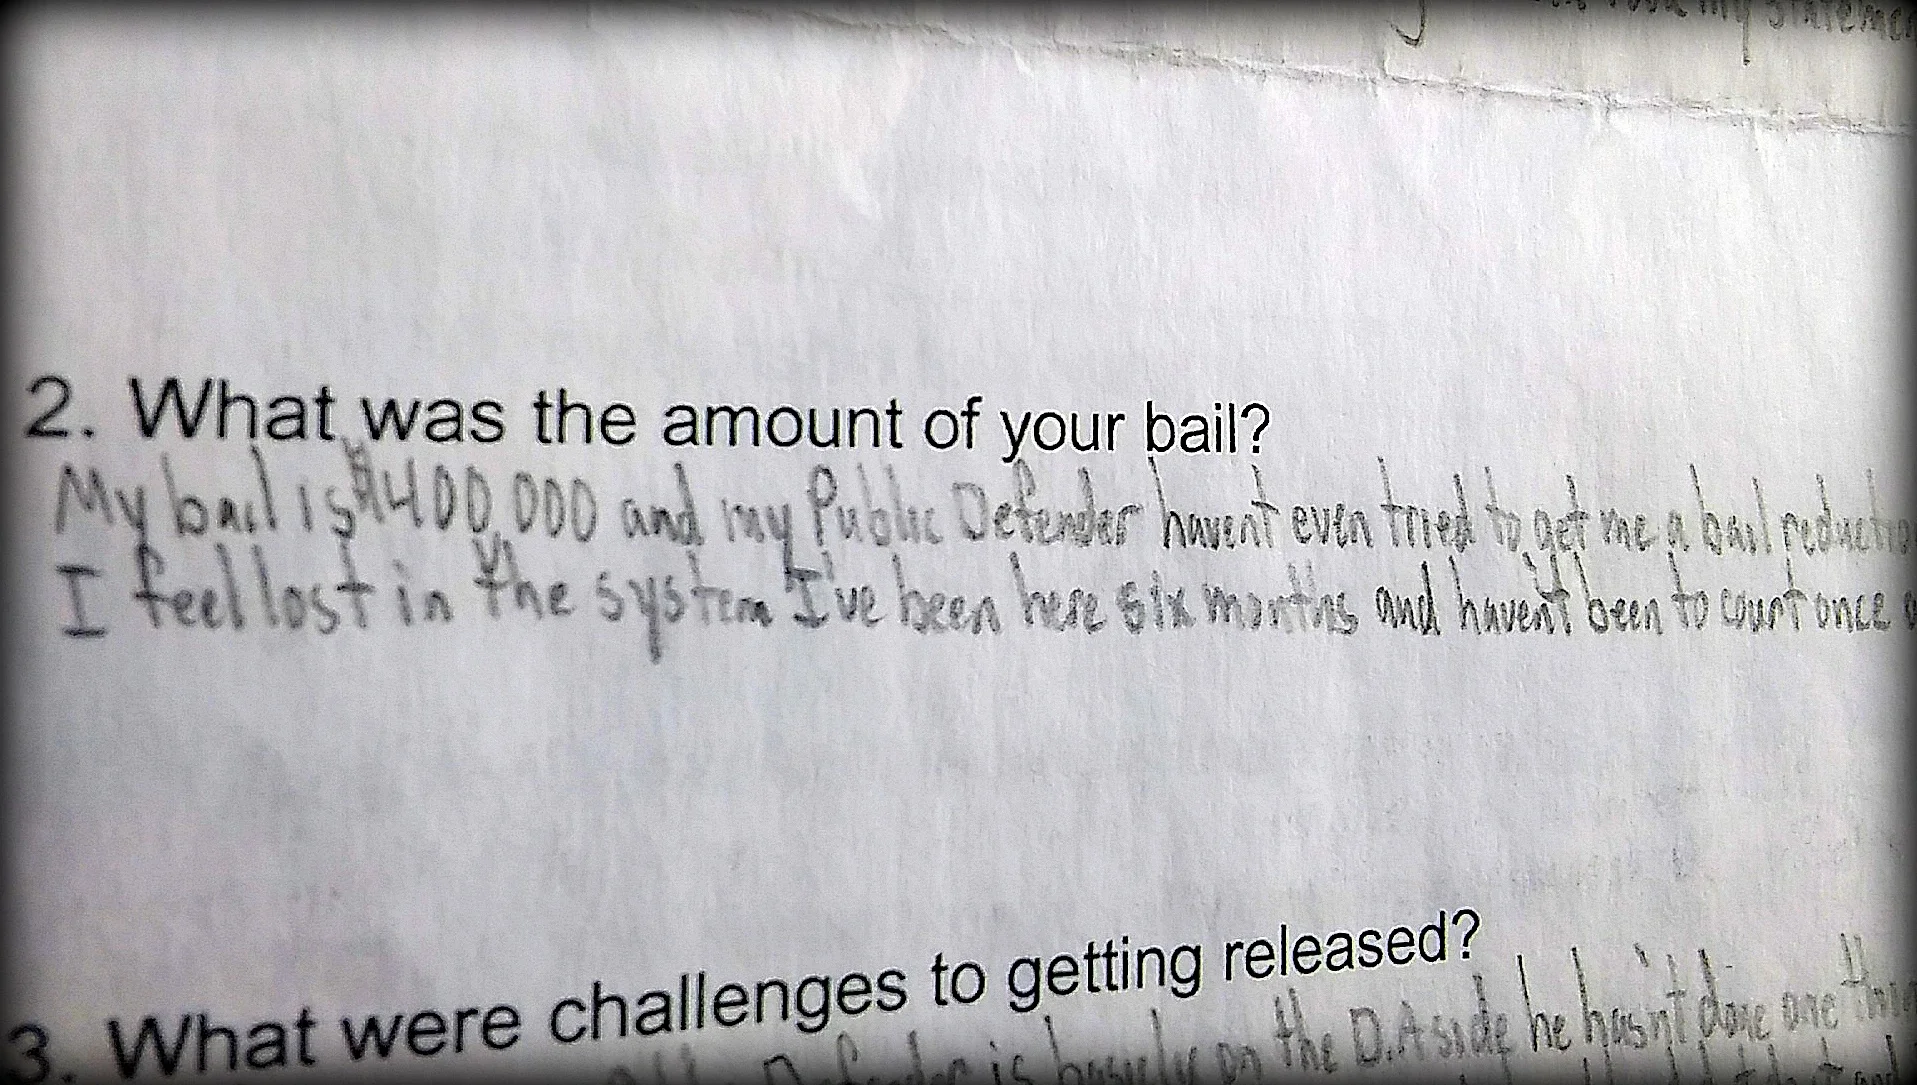 my statemen
2. What was the amount of your bail?
My bail is $400,000 and my Public Defender havent even tried to get me a bail reductio
I feel lost in the system I've been here six months and haven't been to court once
3. What were challenges to getting released?
Defender is basicly on the D.A side he hasn't done one thin